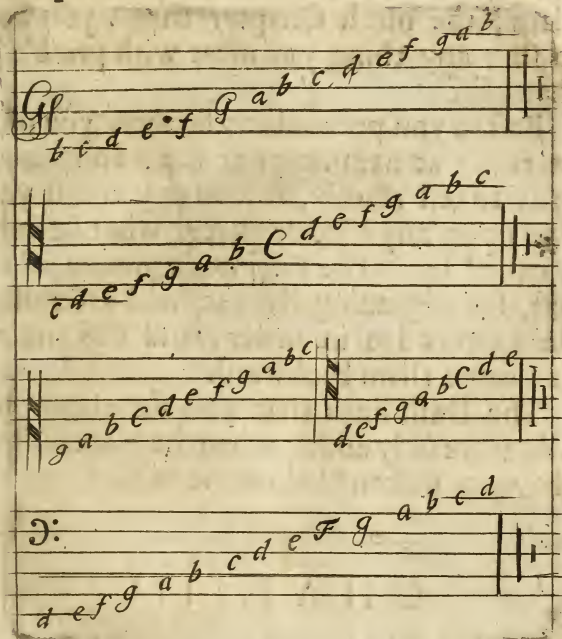 b c d e f G a b c d e f g a b
c d e f g a b C d e f g a b c
g a b C d e f g a b c d e f g a b C d e
d e f g a b c d e F g a b c d